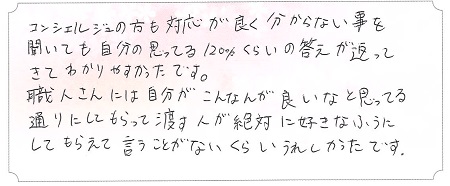 コンシェルジュの方も対応が良く分からない事を
聞いても自分の思ってる120%くらいの答えが返って
きてわかりやすかったです。
職人さんには自分がこんなんが良いなと思ってる
通りにしてもらって渡す人が絶対に好きなふうに
してもらえて言うことがないくらいうれしかったです。